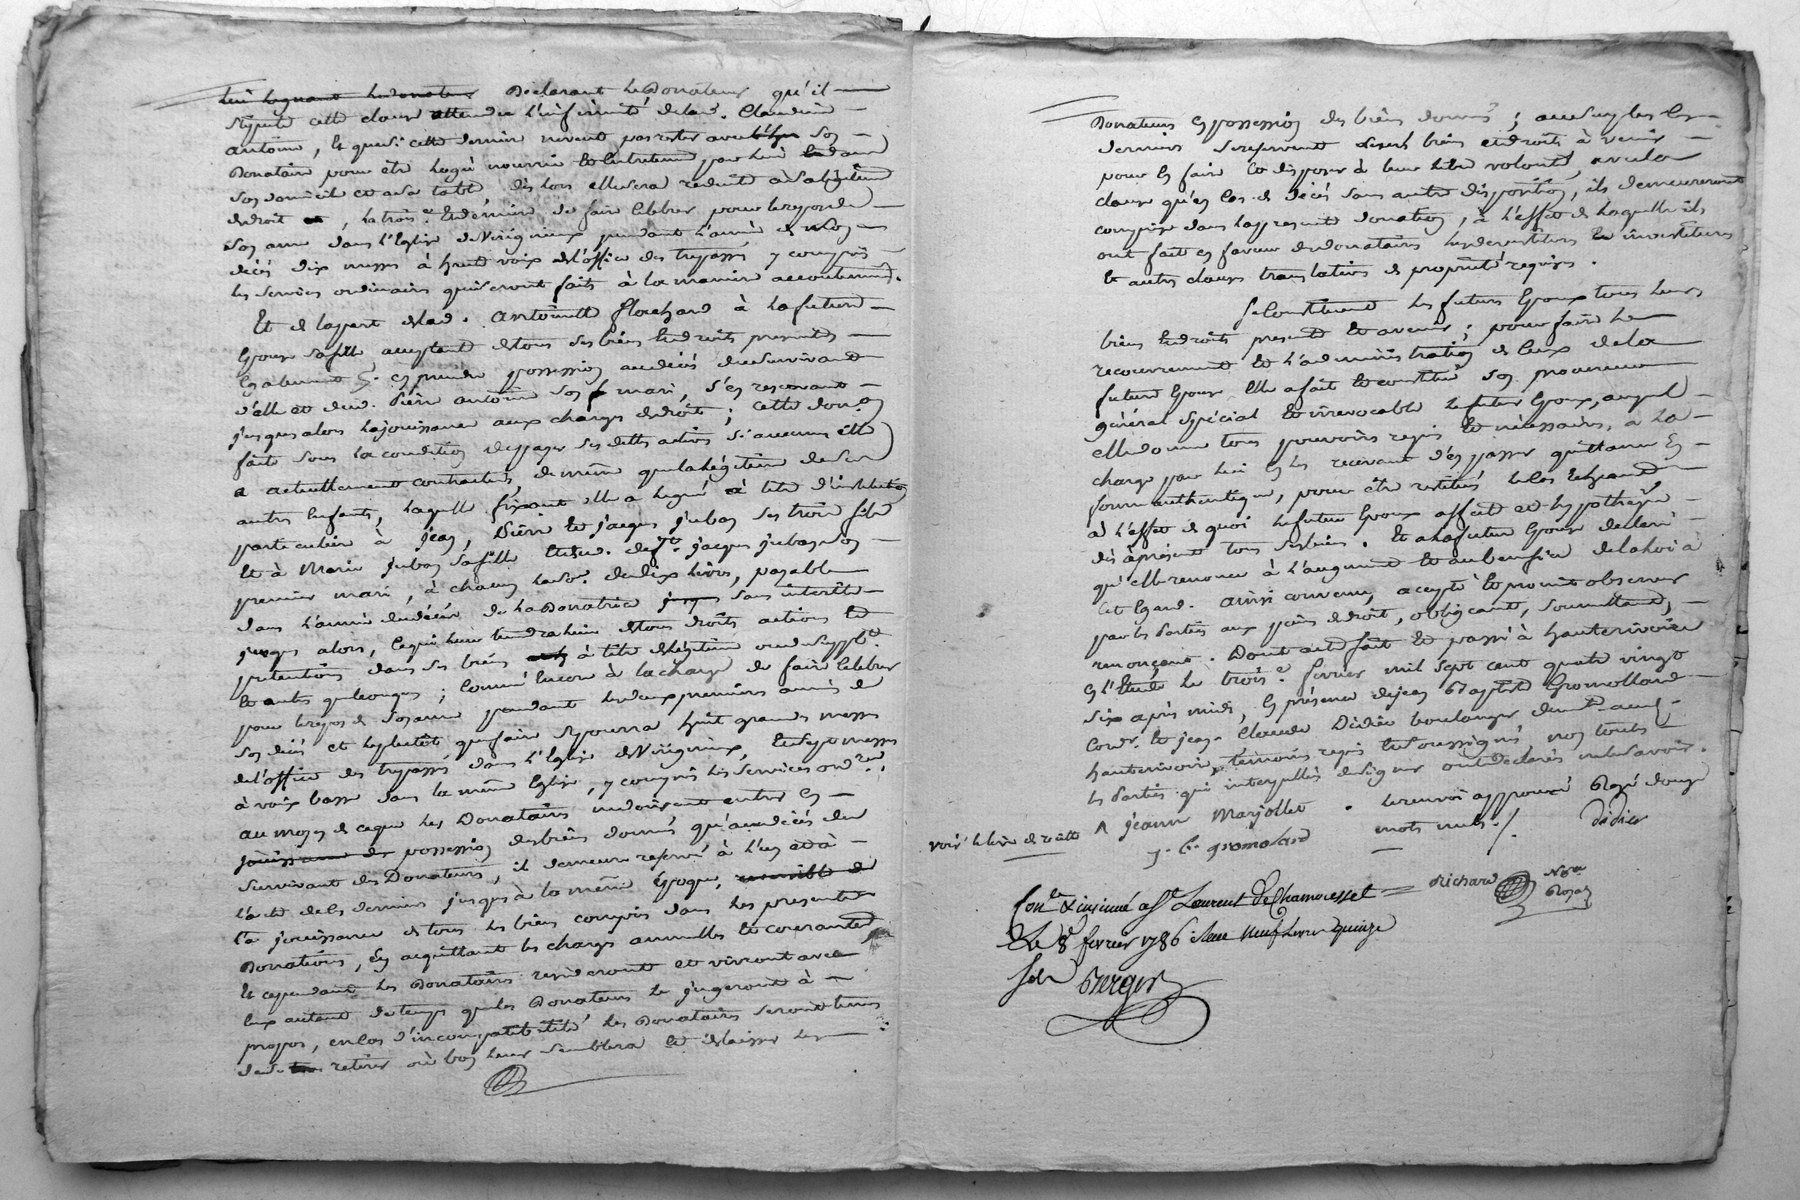 Declarant le Donateur qu'il
stipule cette clause attendu l'infirmité de lad. Claudine
antoine, et que si cette derniere ne veut pas rester avec son
Donataire pour être logé nourrie et entretenue par lui dans
son domicile et a sa table dès lors elle sera reduite à sa légitime
de droit, la troise. et derniere de faire celebrer pour le repos de
son ame dans l'Eglise de Virigneux pendant l'année de son
décés dix messes à haute voix de l'office des trepassés y compris
les services ordinaires qui seront faits à la maniere accoutumée.
Et de la part de lad. antoinette flachard à la future
Epouse sa fille acceptant de tous ses biens et droits presents
également en prendre possession au décés du survivant
d'elle et dud. Pierre antoine son mari, s'en reservant
jusques alors la jouissance aux charges de droit ; cette don.on
faite sous la condition de payer ses dettes actives si aucunes elle
a actuellement contractées, de même que la légitime de ses
autres enfants, laquelle fixant elle a legué à titre d'institution
particuliere à jean, Pierre et jacques juban ses trois fils
et à Marie juban sa fille et dud. deft. jacques juban son
premier mari, à chacun la so.e de dix livres, payable
dans l'année du décés de la Donatrice sans interêts
jusques alors, ce qui leur tiendra lieu de tous droits actions et
pretentions dans ses biens à titre de légitime ou de supplt.
et autres quelconques ; comme encore à la charge de faire celebrer
pour le repos de son ame pendant les deux premieres années de
son décés et le plutôt que faire se pourra huit grandes messes
de l'office des trepassés dans l'Eglise de Virigneux, et sept messes
à voix basse dans la même Eglise, y compris les services ord.res
au moyen de ce que les Donataires ne doivent entrer en
possession des biens donnés qu'au décés du
survivant des Donateurs, il demeure reservé à l'un et à
l'autre de ces derniers jusqu'à la même époque,
la jouissance de tous les biens compris dans les presentes
Donations, en acquittant les charges annuelles et courantes
Et cependant les Donataires resideront et vivront avec
eux autant de temps que les Donateurs le jugeront à
propos, en cas d'incompatibilité les Donataires seront tenus
de se retirer où bon leur semblera et delaisser les
Donateurs en possession des biens donnés ; au surplus les
derniers se reservent leurs biens et droits à venir
pour en faire et disposer à leur libre volonté, avec la
clause qu'en cas de décés sans autre disposition, ils demeureront
compris dans la presente donation, à l'effet de laquelle ils
ont fait en faveur des donataires les devestitures et investitures
et autres clauses translatives de propriété requises.
Se constituent les futurs Epoux tous leurs
biens et droits presents et avenir ; pour faire le
recouvrement et l'administration de ceux de la
future Epouse elle a fait et constitué son procureur
général spécial et irrevocable le futur Epoux, auquel
elle donne tous pouvoirs requis et nécessaires, à la
charge par lui en les recevant d'en passer quittance en
forme authentique, pour être restitués le cas echeant
à l'effet de quoi le futur Epoux affecte et hypothèque
dès àprésent tous ses biens. Et a la future Epouse declaré
qu'elle renonce à l'augment et au benefice de la loi à
cet egard. ainsi convenu, accepté et promis observer
par les Parties aux peines de droit, obligeant, soumettant,
renonçant. Dont acte fait et passé à hauterivoire
en l'étude le trois.e fevrier mil sept cent quatre vingt
six après midi, en présence de jean Baptiste Gromolard
Cord.r et jean Claude Didier boulanger demt. aud.
hauterivoire temoins requis et soussignés non toutes
les Parties qui interpellées de signer ont declarés ne le savoir.
jeanne Marjollet . le renvoi approuvé Rayé douze
mots nuls ./.
didier
j. b. gromolard
Richard
Nre
Royal
Con.lé & insinué a St. Laurent de Chamousset
Le 8 fevrier 1786 Reçu Neuf livres quinze
sols Berger